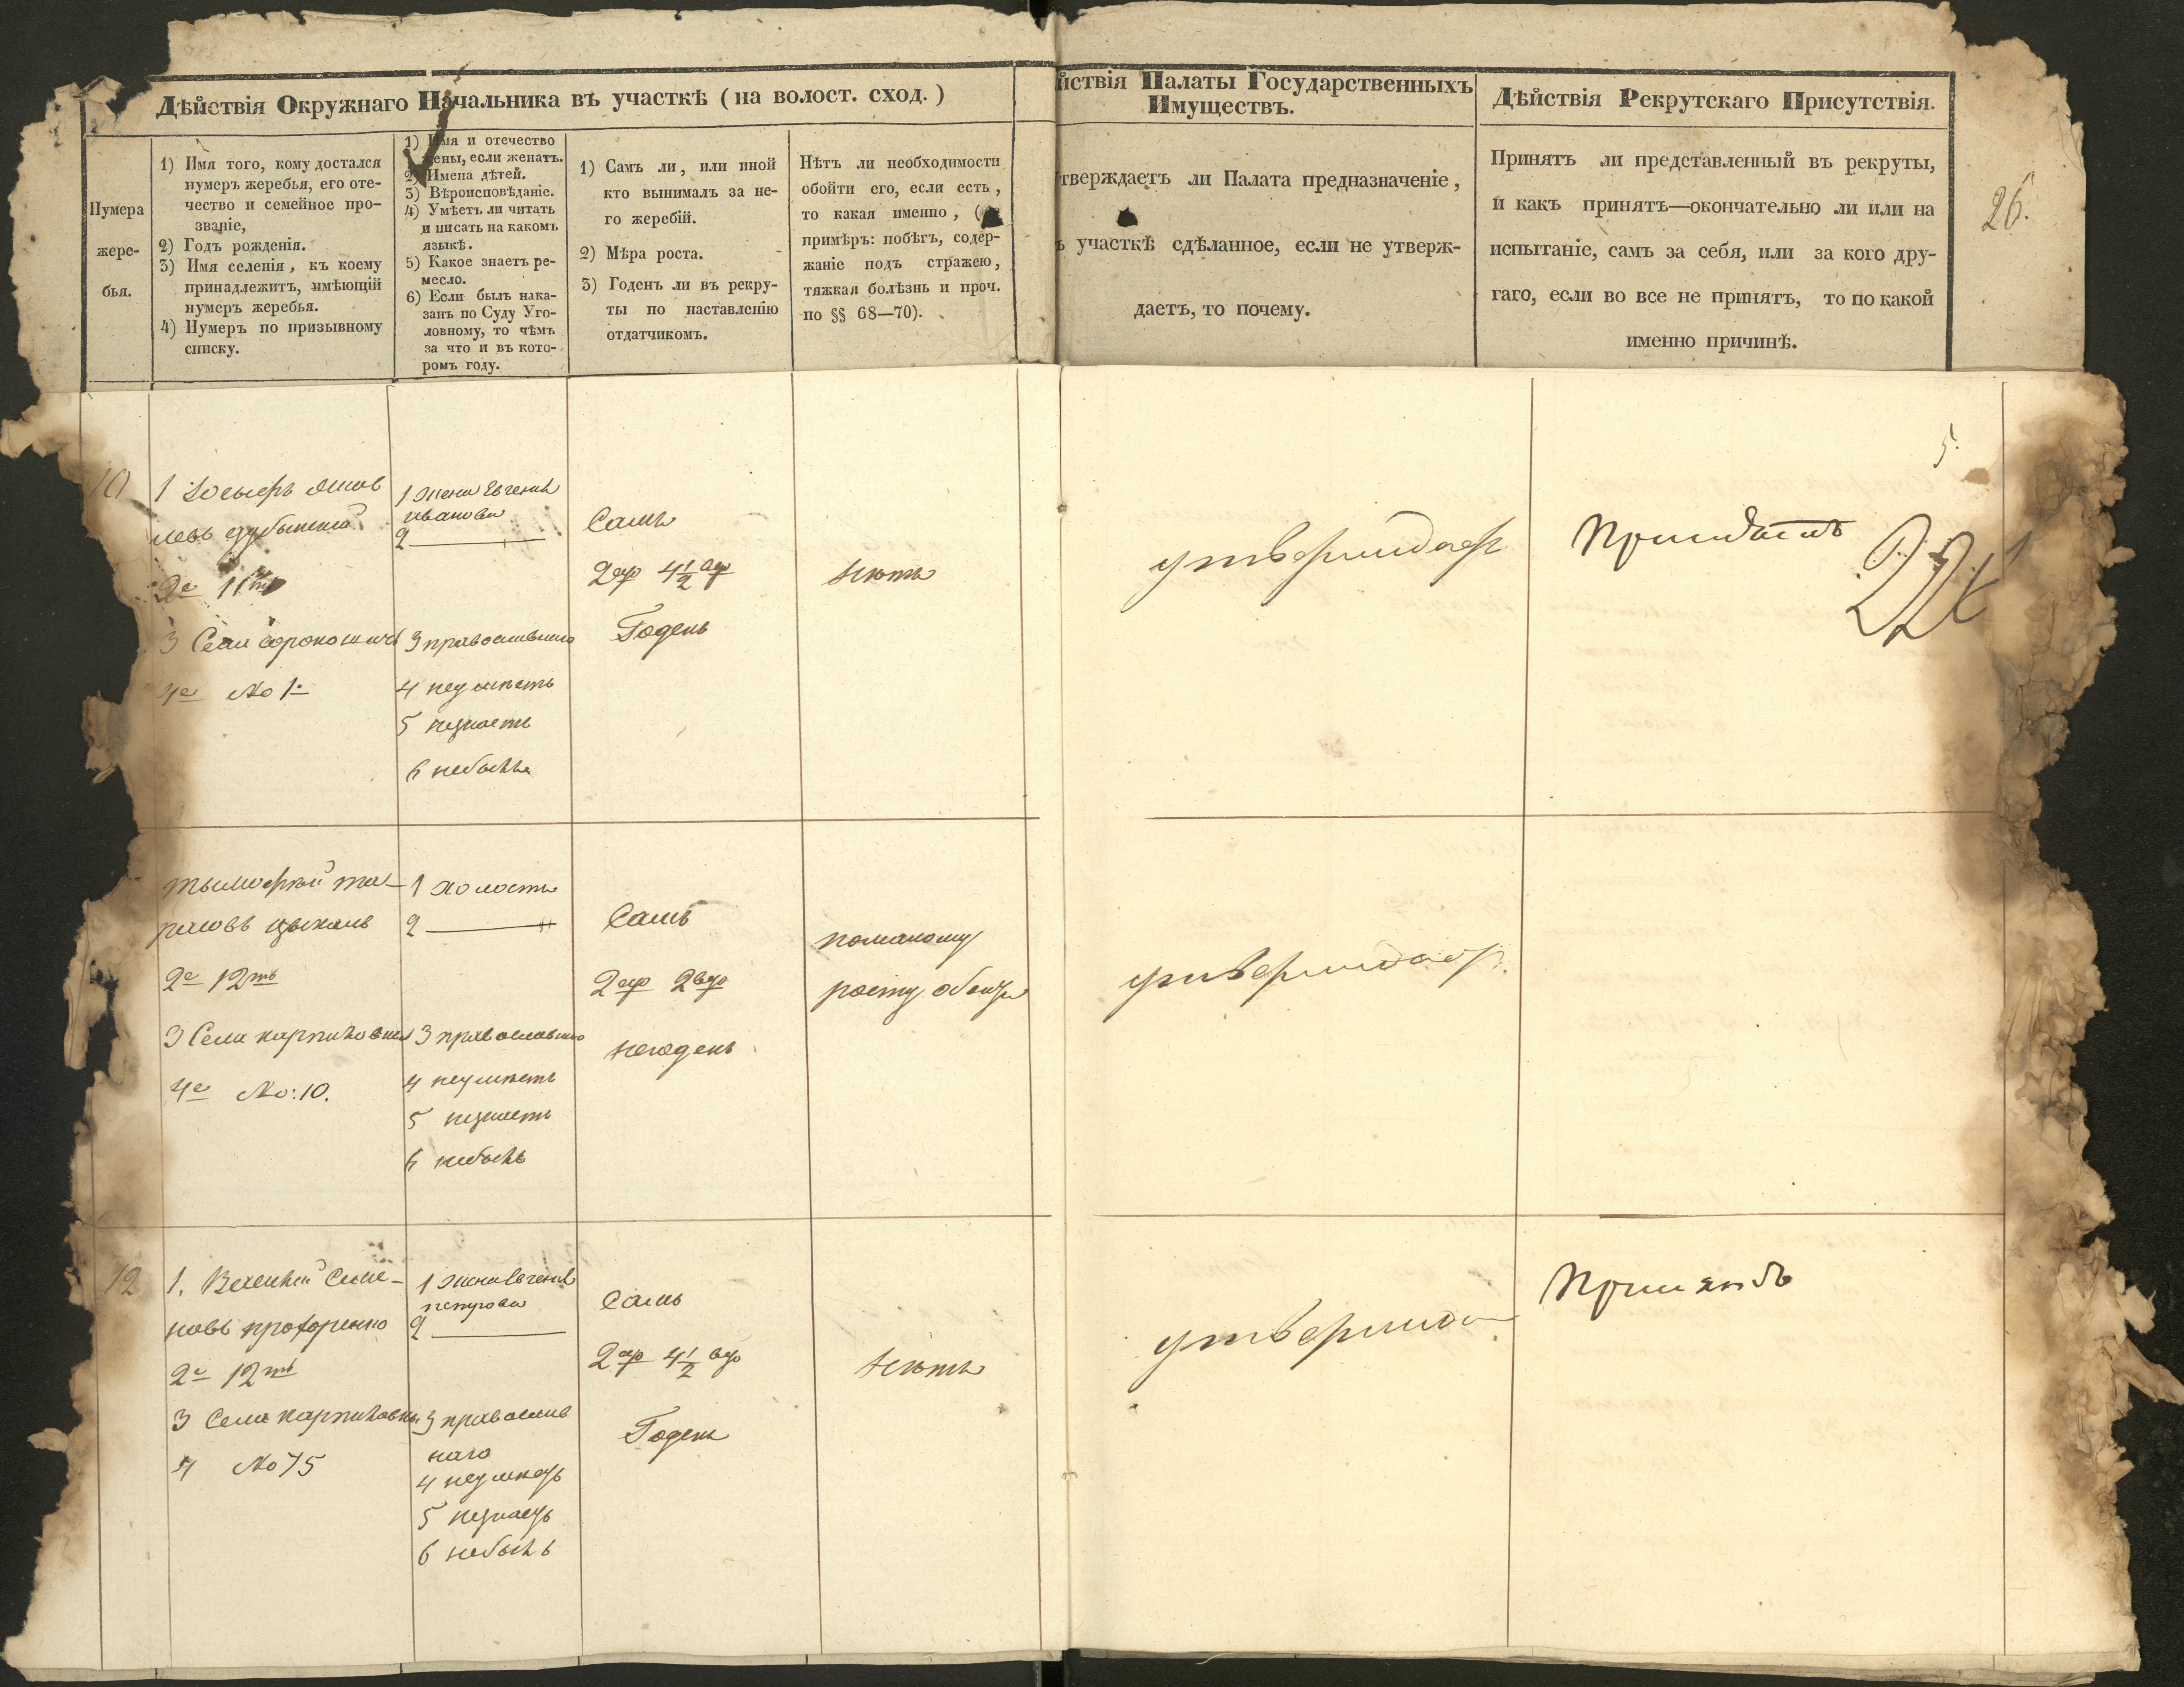 Дѣйствія Окружнаго Начальника въ участкѣ (на волост. сход.)
йствія Палаты Государственныхъ
Имуществъ.
Дѣйствія Рекрутскаго Присутствія.
Нумера
жере-
бья.
1) Имя того, кому достался
нумеръ жеребья, его оте-
чество и семейное про-
званіе,
2) Годъ рожденія.
3) Имя селенія, къ коему
принадлежитъ, имѣющій
нумеръ жеребья.
4) Нумеръ по призывному
списку.
1) Имя и отечество
жены, если женатъ.
2) Имена дѣтей.
3) Вѣроисповѣданіе.
4) Умѣетъ ли читать
и писать на какомъ
языкѣ.
5) Какое знаетъ ре-
месло.
6) Если былъ нака-
занъ по Суду Уго-
ловному, то чѣмъ
за что и въ кото-
ромъ году.
1) Самъ ли, или иной
кто вынималъ за не-
го жеребій.
2) Мѣра роста.
3) Годенъ ли въ рекру-
ты по наставленію
отдатчикомъ.
Нѣтъ ли необходимости
обойти его, если есть,
то какая именно, (
примѣръ: побѣгъ, содер-
жаніе подъ стражею,
тяжкая болѣзнь и проч.
по §§ 68—70).
тверждаетъ ли Палата предназначеніе,
ъ участкѣ сдѣланное, если не утверж-
даетъ, то почему.
Принятъ ли представленный въ рекруты,
и какъ принятъ—окончательно ли или на
испытаніе, самъ за себя, или за кого дру-
гаго, если во все не принятъ, то по какой
именно причинѣ.
26.
5.
10
1
2е 11
3 Села
4е No 1.
1 Жена Евгенія
иванова
2
3 православнаго
4 неумѣетъ
5 незнаетъ
6 небылъ
Самъ
2 ар 4 1/2 вер
Годенъ
Нѣтъ
утверждает
22
тымофей та-
расовъ цыхань
2е 12ть
3 Села карпиловки
4е No: 10.
1 холостъ
2
3 православнаго
4 неумѣетъ
5 незнаетъ
6 небылъ
Самъ
2 ар 2 вер
негоденъ
помалому
росту
утверждает
12
1. Семе-
новъ прохоренко
2е 12ть
3 Села карпиловки
4 No 75
1 жена Евгенія
петрова
2
3 православ
наго
4 неумѣетъ
5 незнаетъ
6 небылъ
Самъ
2 ар 4 1/2 вер
Годенъ
Нѣтъ
утвержда
Принятъ